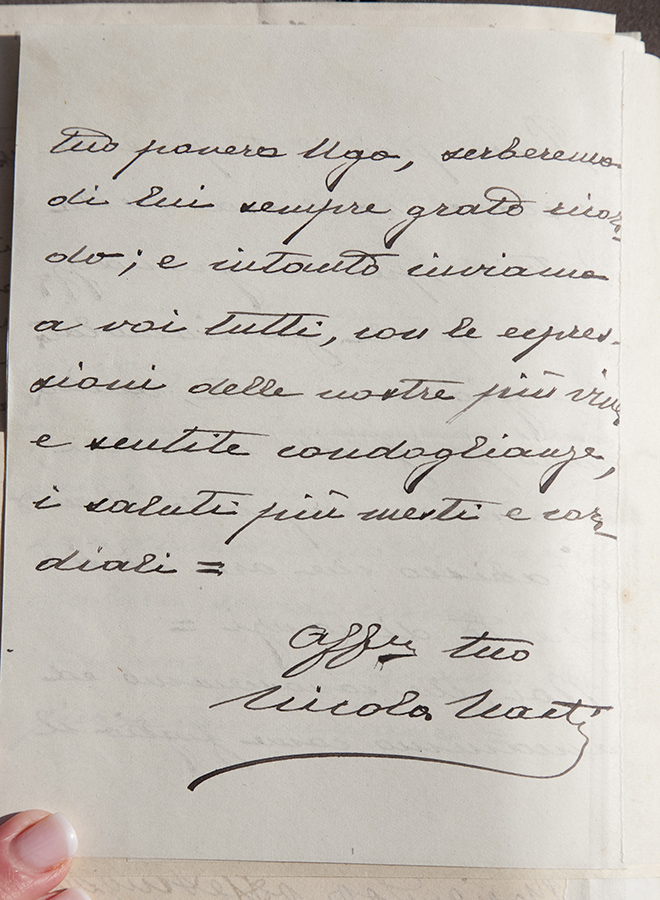 tuo povero Ugo, serberemo
di lui sempre grato ricor-
do; e intanto inviamo
a voi tutti, con le espres-
sioni delle nostre più vive
e sentite condoglianze,
i saluti più mesti e cor-
diali =
Affmo tuo
Nicola